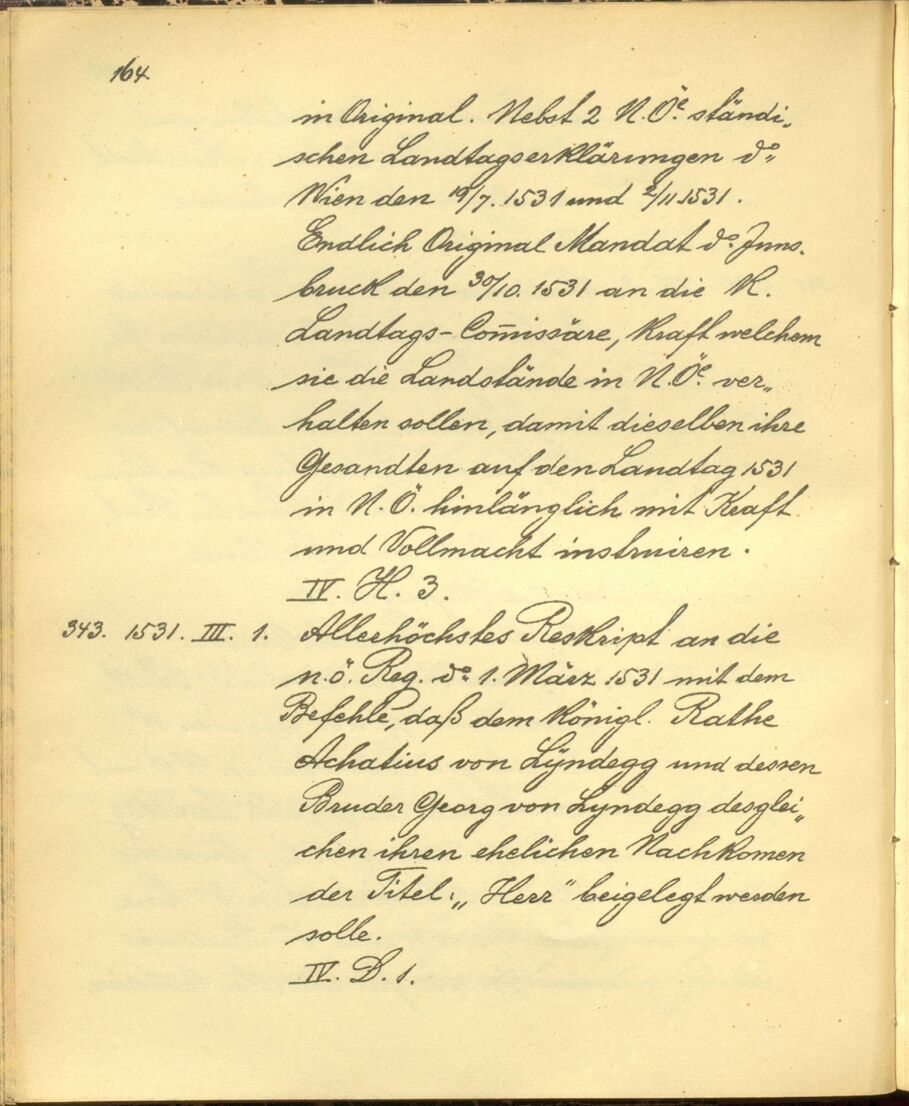 164
in Original. Nebst 2 N.Öe. ständi„
schen Landtagserklärungen do:
Wien den 19/7. 1531 und 2/11.1531.
Endlich Original Mandat do. Inns„
bruck den 30/10. 1531 an die K.
Landtags-Com̄issäre, kraft welchem
sie die Landstände in N.Öe. ver„
halten sollen, damit dieselben ihre
Gesandten auf den Landtag 1531
in N.Ö. hinlänglich mit Kraft
und Vollmacht instruiren.
IV. H. 3.
343. 1531. III. 1. Allerhöchstes Reskript an die
n.ö. Reg. do: 1. März 1531 mit dem
Befehle, daß dem königl. Rathe
Achatius von Lÿndegg und dessen
Bruder Georg von Lyndegg desglei„
chen ihren ehelichen Nachkomen
der Titel: „Herr" beigelegt werden
solle.
IV. D. 1.